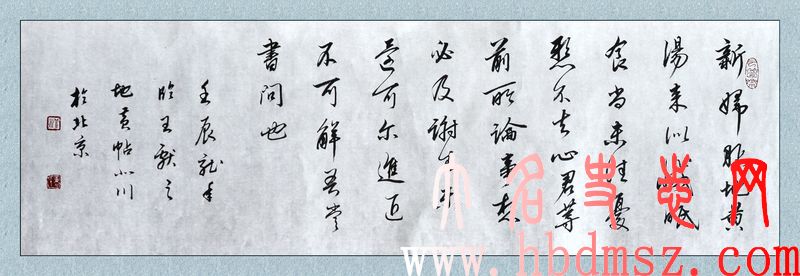 新婦服地黄
湯来似減眠
食尚未佳憂
懸不去心君等
前所論事想
必及謝生未
還可尔進退
不可解吾當
書問也
壬辰龍年
臨王獻之
地黄帖小川
於北京
大名史志网
www.hbdmsz.com